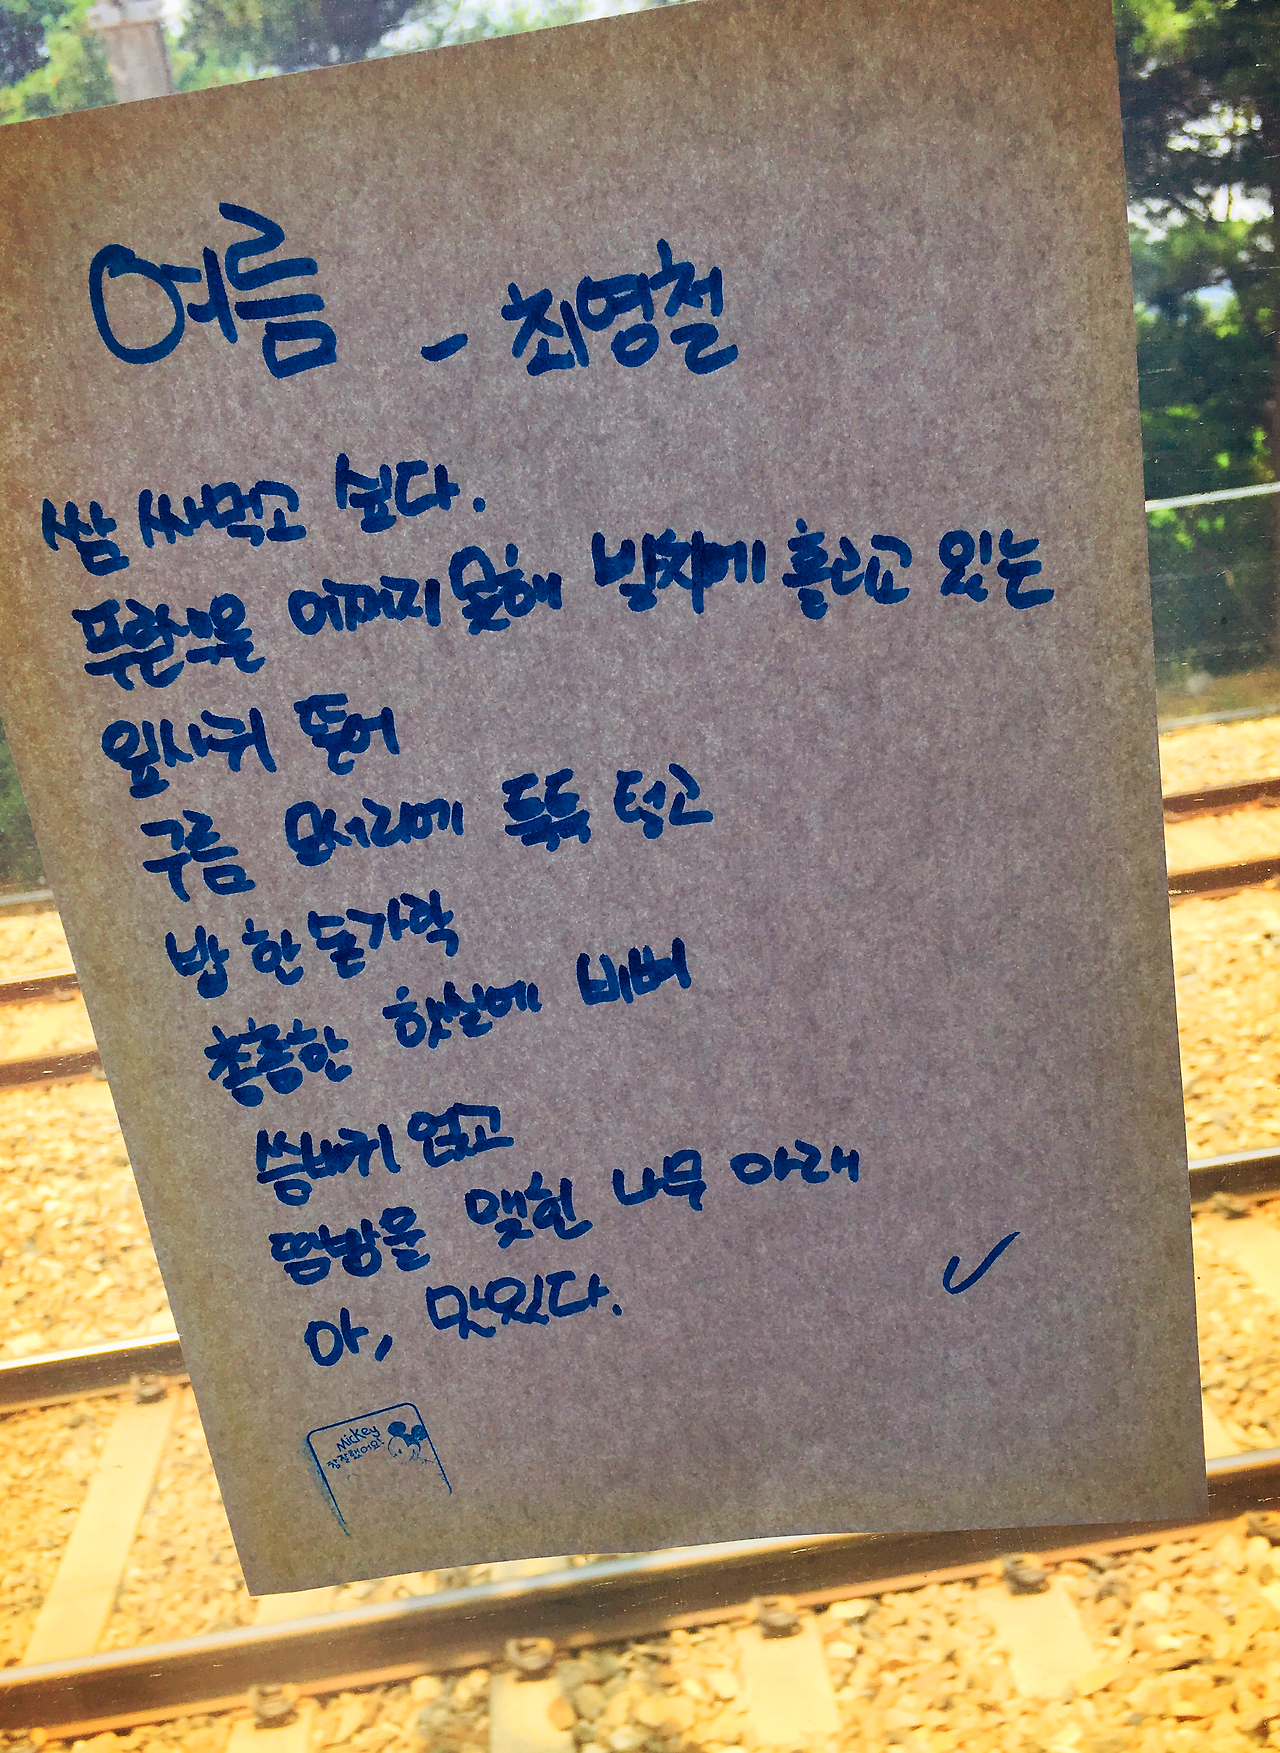 여름 - 최영철
쌈 싸먹고 싶다.
푸른색을 어쩌지 못해 발치에 흘리고 있는
잎사귀 뜯어
구름 모서리에 툭툭 털고
밥 한 숟가락
촘촘한 햇살에 비벼
씀바귀 얹고
땀방울 맺힌 나무 아래
아, 맛있다.
Mickey
참 잘했어요!